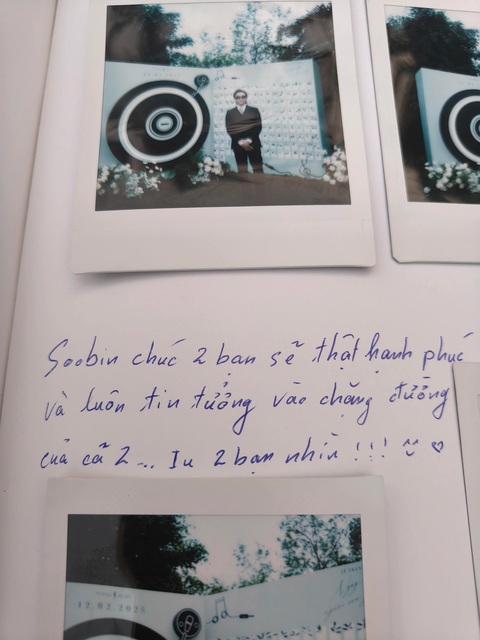 Soobin chúc 2 bạn sẽ thật hạnh phúc
và luôn tin tưởng vào chặng đường
của cả 2... Iu 2 bạn nhìn !!!
12.02.2025